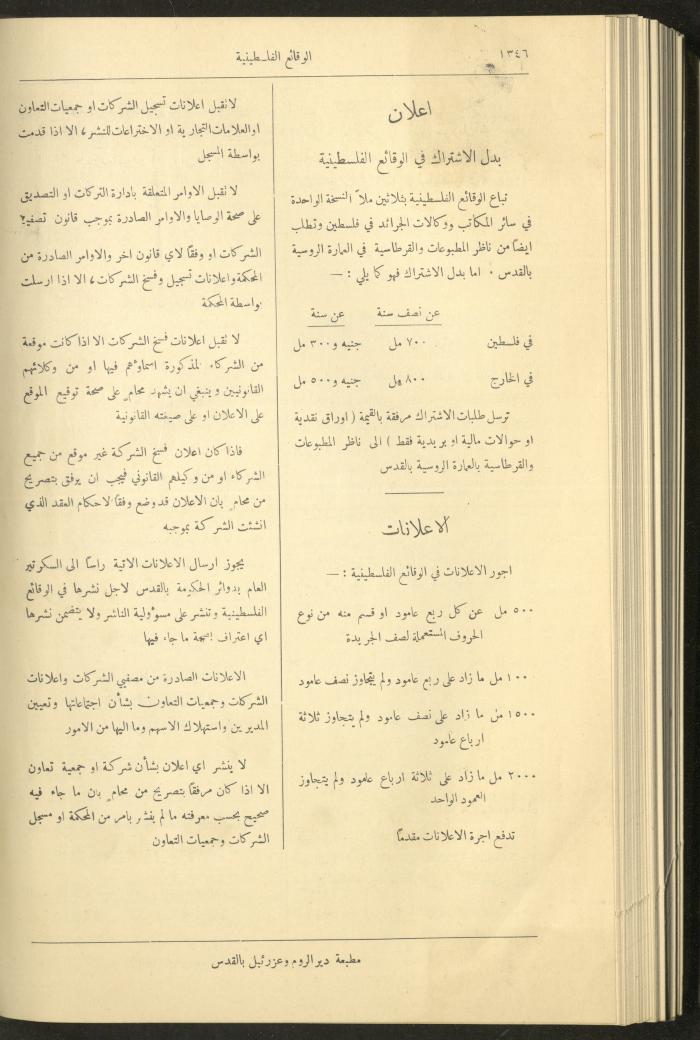 ١٣٤٦
الوقائع الفلسطينية
اعلان
بدل الاشتراك في الوقائع الفلسطينية
تباع الوقائع الفلسطينية بثلاثين ملاً النسخة الواحدة
في سائر المكاتب ووكالات الجرائد في فلسطين وتطلب
ايضاً من ناظر المطبوعات والقرطاسية في العمارة الروسية
بالقدس ، اما بدل الاشتراك فهو كما يلي : —
عن نصف سنة عن سنة
في فلسطين ٧٠٠ مل جنيه و ٣٠٠ مل
في الخارج ٨٠٠ مل جنيه و ٥٠٠ مل
ترسل طلبات الاشتراك مرفقة بالقيمة ( اوراق نقدية
او حوالات مالية او بريدية فقط ) الى ناظر المطبوعات
والقرطاسية بالعمارة الروسية بالقدس
الاعلانات
اجور الاعلانات في الوقائع الفلسطينية : —
٥٠٠ مل عن كل ربع عامود او قسم منه من نوع
الحروف المستعملة لصف الجريدة
١٠٠ مل ما زاد على ربع عامود ولم يتجاوز نصف عامود
١٥٠٠ مل ما زاد على نصف عامود ولم يتجاوز ثلاثة
ارباع عامود
٢٠٠٠ مل ما زاد على ثلاثة ارباع عامود ولم يتجاوز
العمود الواحد
تدفع اجرة الاعلانات مقدماً
لا تقبل اعلانات تسجيل الشركات او جمعيات التعاون
او العلامات التجارية او الاختراعات للنشر ، الا اذا قدمت
بواسطة المسجل
لا تقبل الاوامر المتعلقة بادارة التركات او التصديق
على صحة الوصايا والاوامر الصادرة بموجب قانون تصفية
الشركات او وفقاً لاي قانون اخر والاوامر الصادرة من
المحكمة واعلانات تسجيل وفسخ الشركات ، الا اذا ارسلت
بواسطة المحكمة
لا تقبل اعلانات فسخ الشركات الا اذا كانت موقعة
من الشركاء المذكورة اسماؤهم فيها او من وكلائهم
القانونيين وينبغي ان يشهد محام على صحة توقيع الموقع
على الاعلان او على صيغته القانونية
فاذا كان اعلان فسخ الشركة غير موقع من جميع
الشركاء او من وكيلهم القانوني فيجب ان يرفق بتصريح
من محام بان الاعلان قد وضع وفقاً لاحكام العقد الذي
انشئت الشركة بموجبه
يجوز ارسال الاعلانات الاتية راساً الى السكرتير
العام بدوائر الحكومة بالقدس لاجل نشرها في الوقائع
الفلسطينية وتنشر على مسؤولية الناشر ولا يتضمن نشرها
اي اعتراف بصحة ما جاء فيها
الاعلانات الصادرة من مصفيي الشركات واعلانات
الشركات وجمعيات التعاون بشأن اجتماعاتها وتعيين
المديرين واستهلاك الاسهم وما اليها من الامور
لا ينشر اي اعلان بشأن شركة او جمعية تعاون
الا اذا كان مرفقاً بتصريح من محام بان ما جاء فيه
صحيح بحسب معرفته ما لم ينشر بامر من المحكمة او مسجل
الشركات وجمعيات التعاون
مطبعة دير الروم وعزرئيل بالقدس